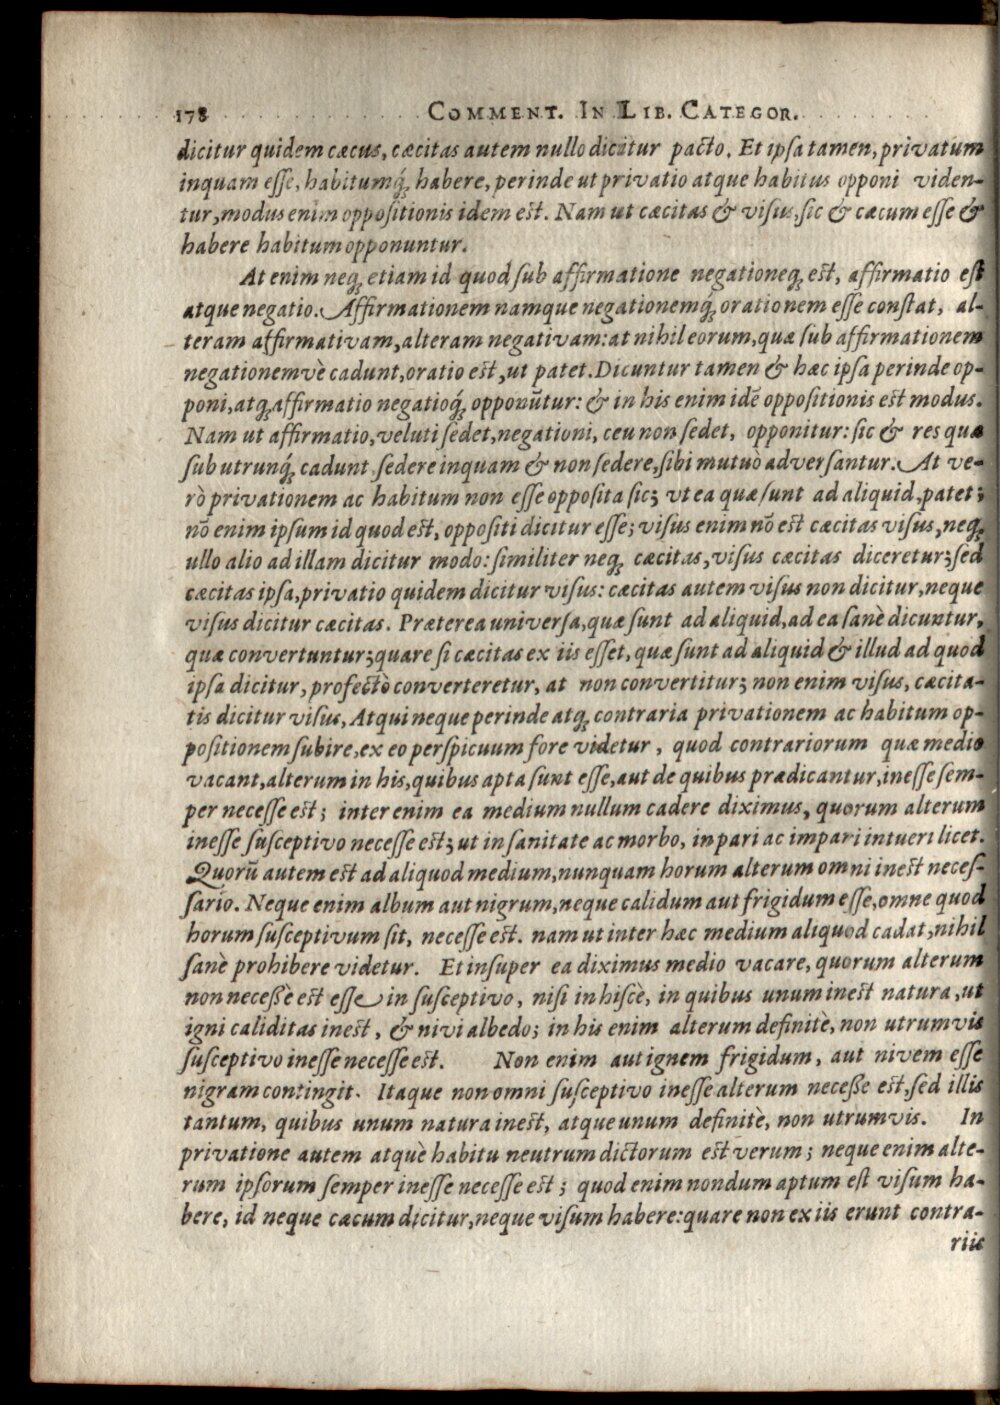 178 COMMENT. IN LIB. CATEGOR.
dicitur quidem cæcus, cæcitas autem nullo dicitur pacto. Et ipsa tamen, privatum
inquam eſſe, habitumq́; habere, perinde ut privatio atque habitus opponi viden-
tur, modus enim oppoſitionis idem est. Nam ut cæcitas & viſus, ſic & cæcum eſſe &
habere habitum opponuntur.
At enim neq; etiam id quod ſub affirmatione negationeq; est, affirmatio eſt
atque negatio. Affirmationem namque negationemq́; orationem eſſe conſtat, al-
teram affirmativam, alteram negativam: at nihil eorum, quæ ſub affirmationem
negationemvè cadunt, oratio est, ut patet. Dicuntur tamen & hæc ipſa perinde op-
poni, atq; affirmatio negatioq́; opponūtur: & in his enim idē oppoſitionis est modus.
Nam ut affirmatio, veluti ſedet, negationi, ceu non ſedet, opponitur: ſic & res quæ
ſub utrunq́; cadunt ſedere inquam & non ſedere, ſibi mutuò adverſantur. At ve-
rò privationem ac habitum non eſſe oppoſita ſic; vt ea quæ ſunt ad aliquid, patet;
nō enim ipſum id quod est, oppoſiti dicitur eſſe; viſus enim nō est cæcitas viſus, neq;
ullo alio ad illam dicitur modo: ſimiliter neq; cæcitas, viſus cæcitas diceretur; ſed
cæcitas ipſa, privatio quidem dicitur viſus: cæcitas autem viſus non dicitur, neque
viſus dicitur cæcitas. Præterea univerſa, quæ ſunt ad aliquid, ad ea ſanè dicuntur,
quæ convertuntur; quare ſi cæcitas ex iis eſſet, quæ ſunt ad aliquid & illud ad quod
ipſa dicitur, profectò converteretur, at non convertitur; non enim viſus, cæcita-
tis dicitur viſus, Atqui neque perinde atq; contraria privationem ac habitum op-
poſitionem ſubire, ex eo perſpicuum fore videtur, quod contrariorum quæ medio
vacant, alterum in his, quibus apta ſunt eſſe, aut de quibus prædicantur, ineſſe ſem-
per neceſſe est; inter enim ea medium nullum cadere diximus, quorum alterum
ineſſe ſuſceptivo neceſſe est; ut in ſanitate ac morbo, in pari ac impari intueri licet.
Quorū autem est ad aliquod medium, nunquam horum alterum omni inest neceſ-
ſario. Neque enim album aut nigrum, neque calidum aut frigidum eſſe, omne quod
horum ſuſceptivum ſit, neceſſe est. nam ut inter hæc medium aliquod cadat, nihil
ſanè prohibere videtur. Et inſuper ea diximus medio vacare, quorum alterum
non neceßè est eſſe in ſuſceptivo, niſi in hiſcè, in quibus unum inest natura, ut
igni caliditas inest, & nivi albedo; in his enim alterum definitè, non utrumvis
ſuſceptivo ineſſe neceſſe est. Non enim aut ignem frigidum, aut nivem eſſe
nigram contingit. Itaque non omni ſuſceptivo ineſſe alterum neceße est, ſed illis
tantum, quibus unum natura inest, atque unum definitè, non utrumvis. In
privatione autem atquè habitu neutrum dictorum est verum; neque enim alte-
rum ipſorum ſemper ineſſe neceſſe est; quod enim nondum aptum eſt viſum ha-
bere, id neque cæcum dicitur, neque viſum habere: quare non ex iis erunt contra-
riis